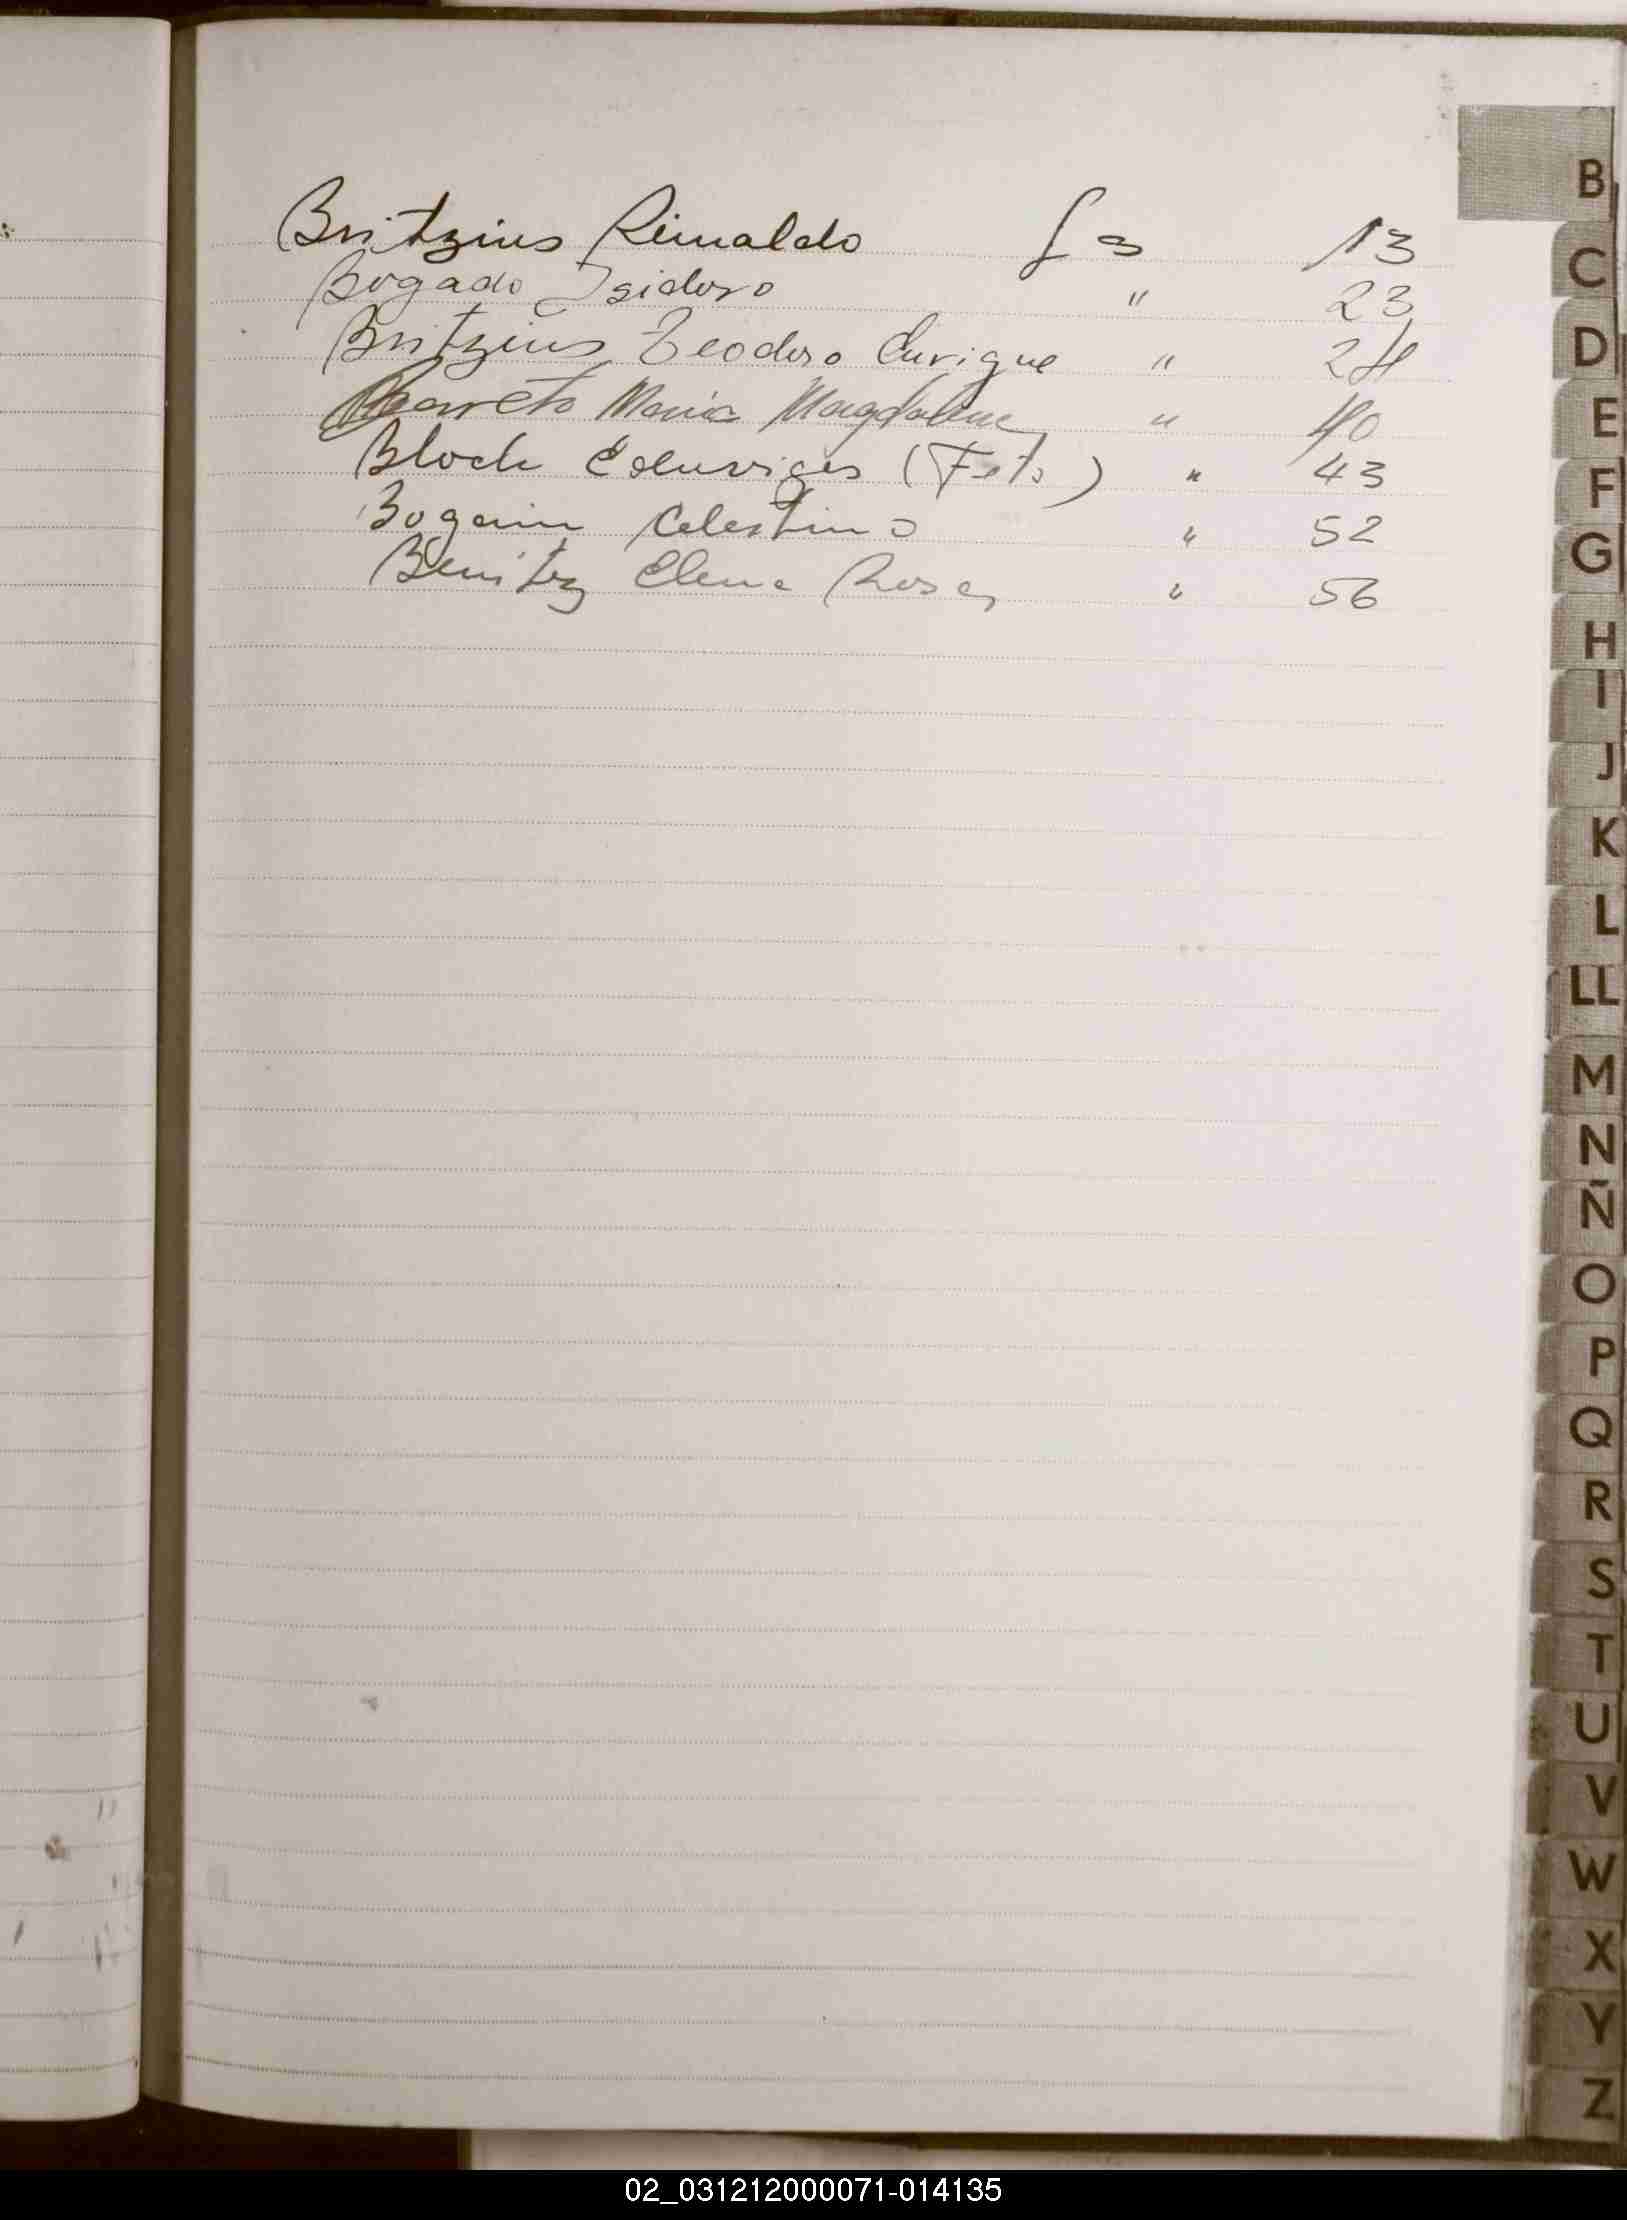 Britzius Reinaldo f 3 13
Bogado Isidoro " 23
Britzius Teodoro Enrique " 24
Barreto Maria Magdalena " 40
Bloch Eduviges (Feto) " 43
Bogarin Celestino " 52
Benitez Elena Rosa " 56
B
C
D
E
F
G
H
I
J
K
L
LL
M
N
Ñ
O
P
Q
R
S
T
U
V
W
X
Y
Z
02_031212000071-014135